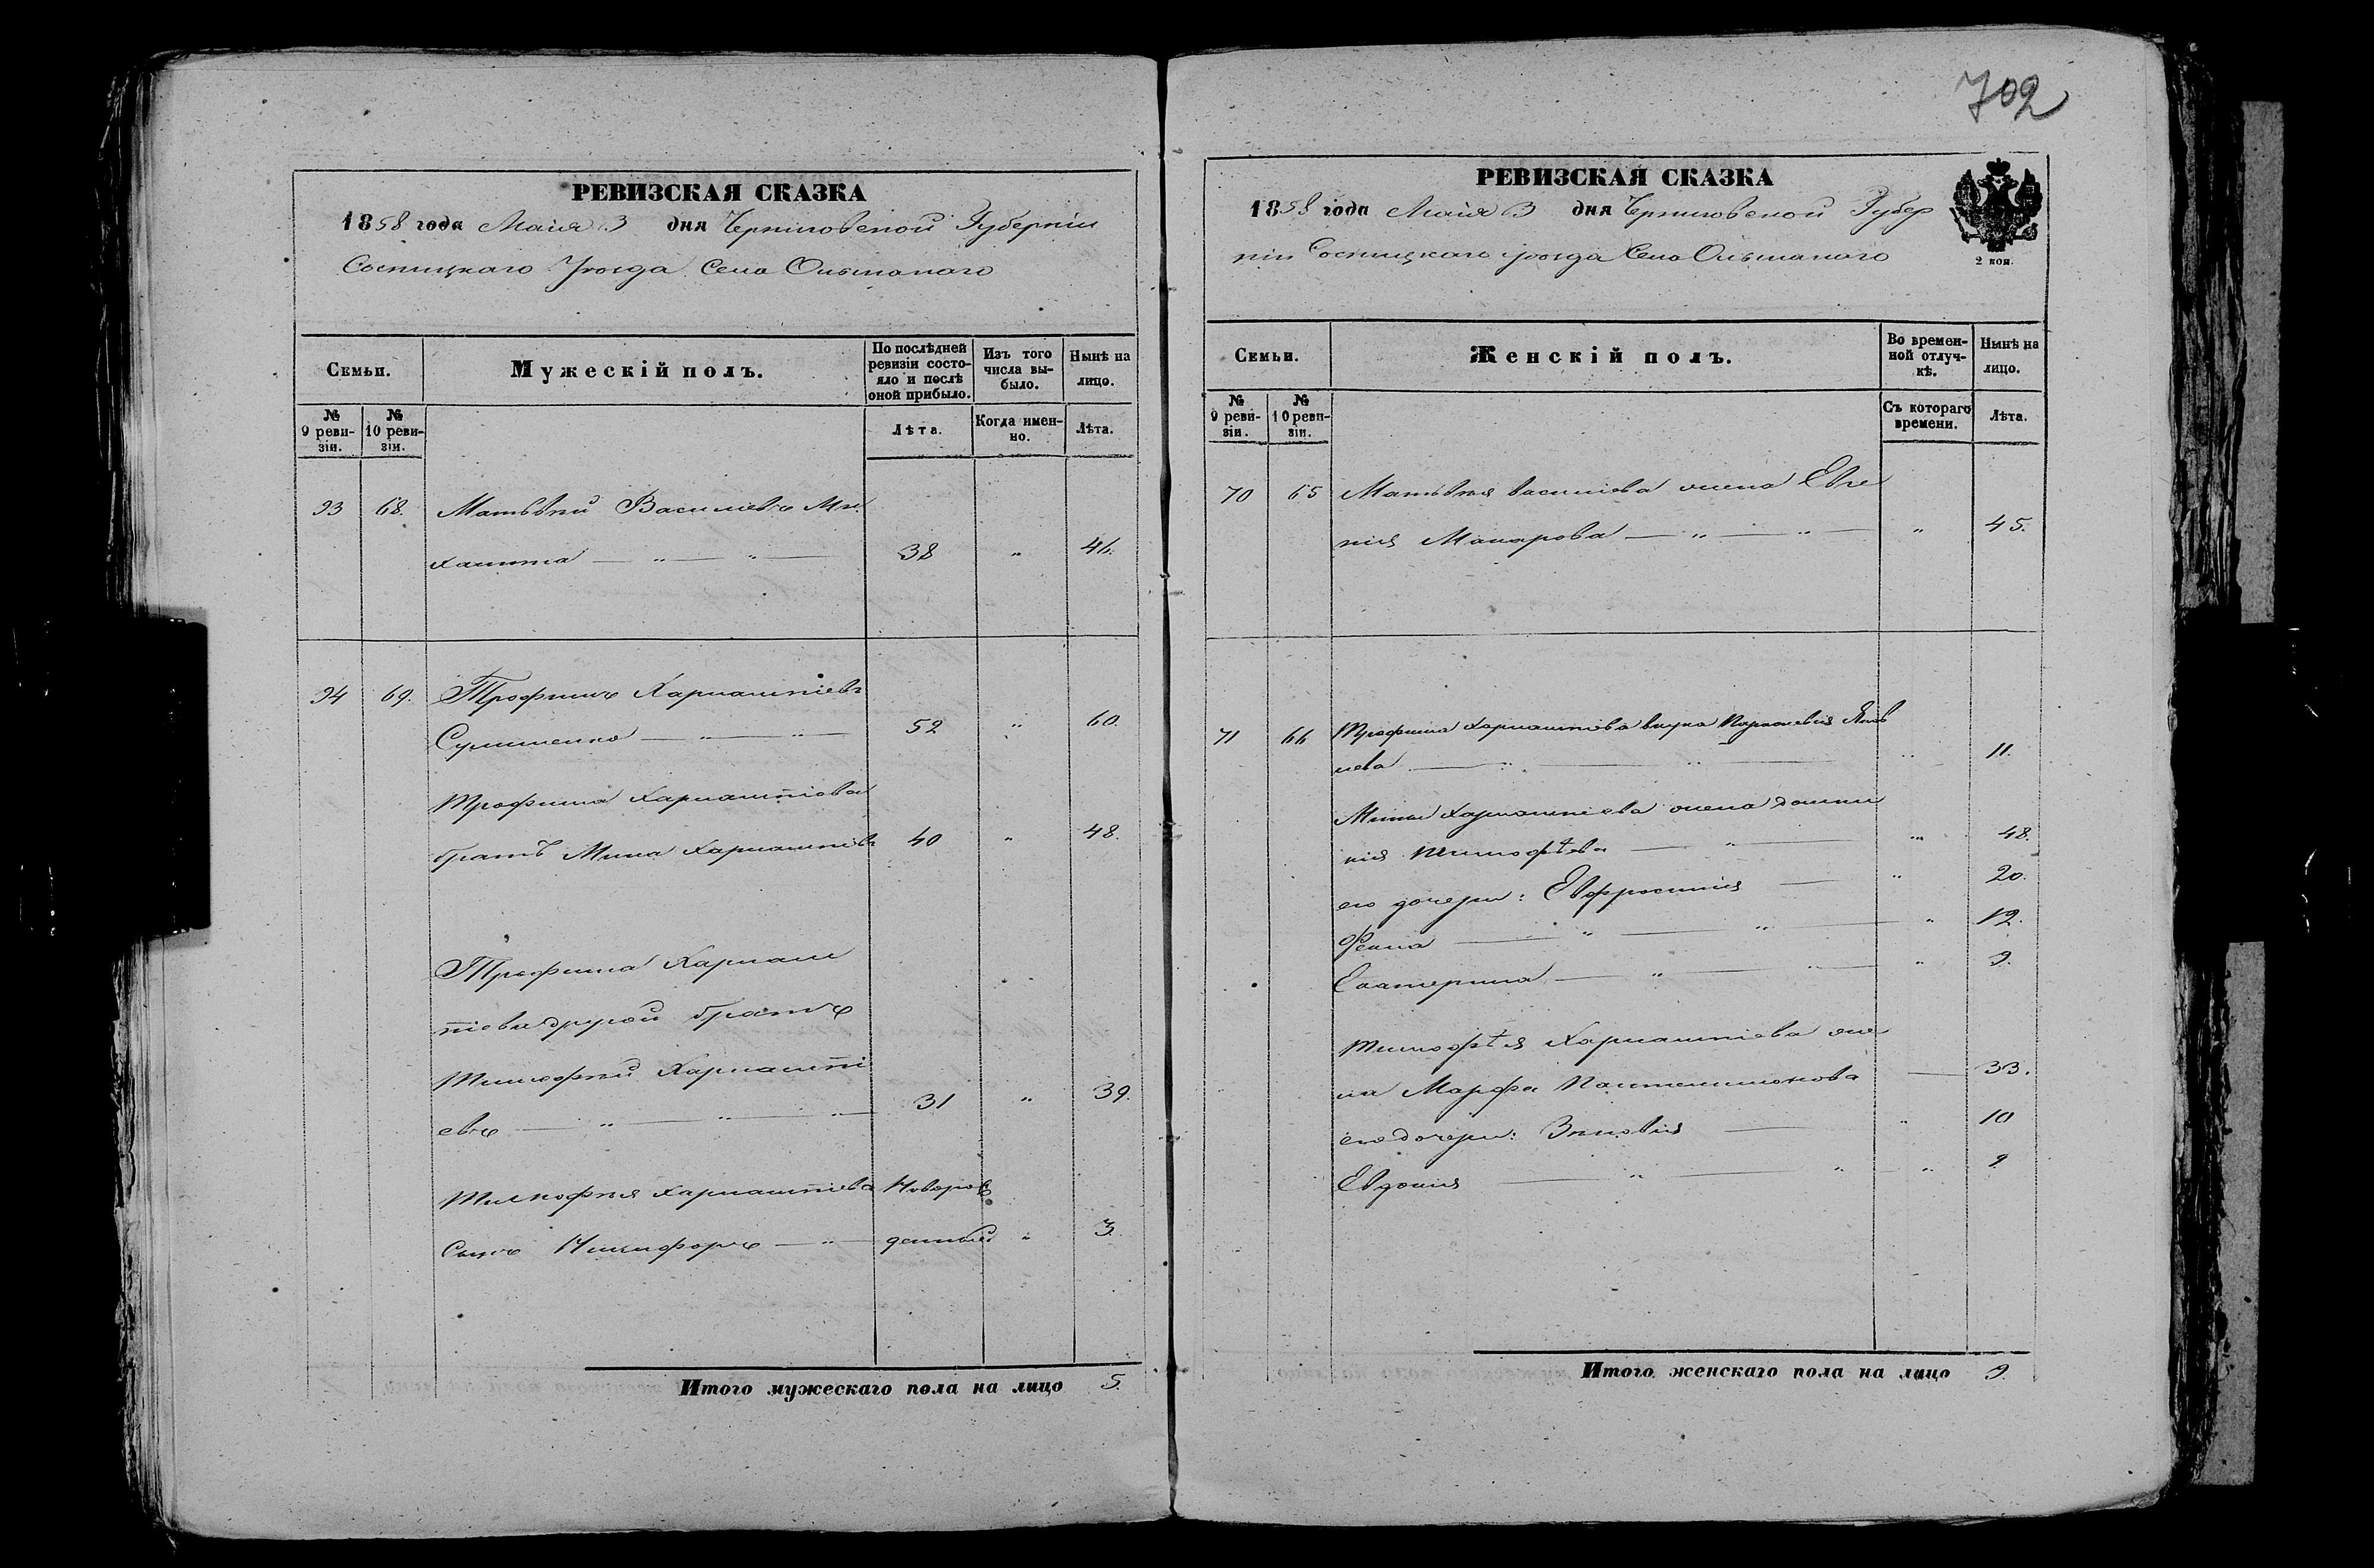 702
РЕВИЗСКАЯ СКАЗКА
1858 года Маія 3 дня Черниговской Губерніи
Сосницкаго Уѣзда Села Ольшанаго
Семьи.
Мужескій полъ.
По послѣдней ревизіи состояло и послѣ оной прибыло.
Изъ того числа выбыло.
Нынѣ на лицо.
№ 9 ревизіи.
№ 10 ревизіи.
Лѣта.
Когда именно.
Лѣта.
93 68. Матвѣй Василіевъ Ми
халита — „ — „ — 38 „ 46.
94 69. Трофимъ Харлампіевъ
Сулименко — „ — „ — 52 „ 60.
Трофима Харлампіева
братъ Мина Харлампіевъ 40 „ 48.
Трофима Харлам
піева другой братъ
Тимофей Харлампі
евъ — „ — „ — „ — 31 „ 39.
Тимофея Харлампіева Новорож
Сынъ Никифоръ — „ — денный „ 3.
Итого мужескаго пола на лицо 5.
РЕВИЗСКАЯ СКАЗКА
1858 года Маія 3 дня Черниговской Губер
ніи Сосницкаго уѣзда Села Ольшанаго
2 коп.
Семьи.
Женскій полъ.
Во временной отлучкѣ.
Нынѣ на лицо.
№ 9 ревизіи.
№ 10 ревизіи.
Съ котораго времени.
Лѣта.
70 65 Матвѣя Василіева жена Евге
нія Макарова — „ — „ — „ 45.
71 66 Трофима Харлампіева внука Параскевія Яков
лева — „ — „ — „ 11.
Мины Харлампіева жена Домни
кія Тимофѣева — „ — „ 48.
его дочери: Евфросинія — „ 20.
Фекла — „ — „ — „ 12.
Екатерина — „ — „ — „ 9.
Тимофѣя Харлампіева же
на Марфа Пантелимонова — 33.
его дочери: Зиновія — „ 10
Евдокія — „ — „ — „ 9
Итого женскаго пола на лицо 9.